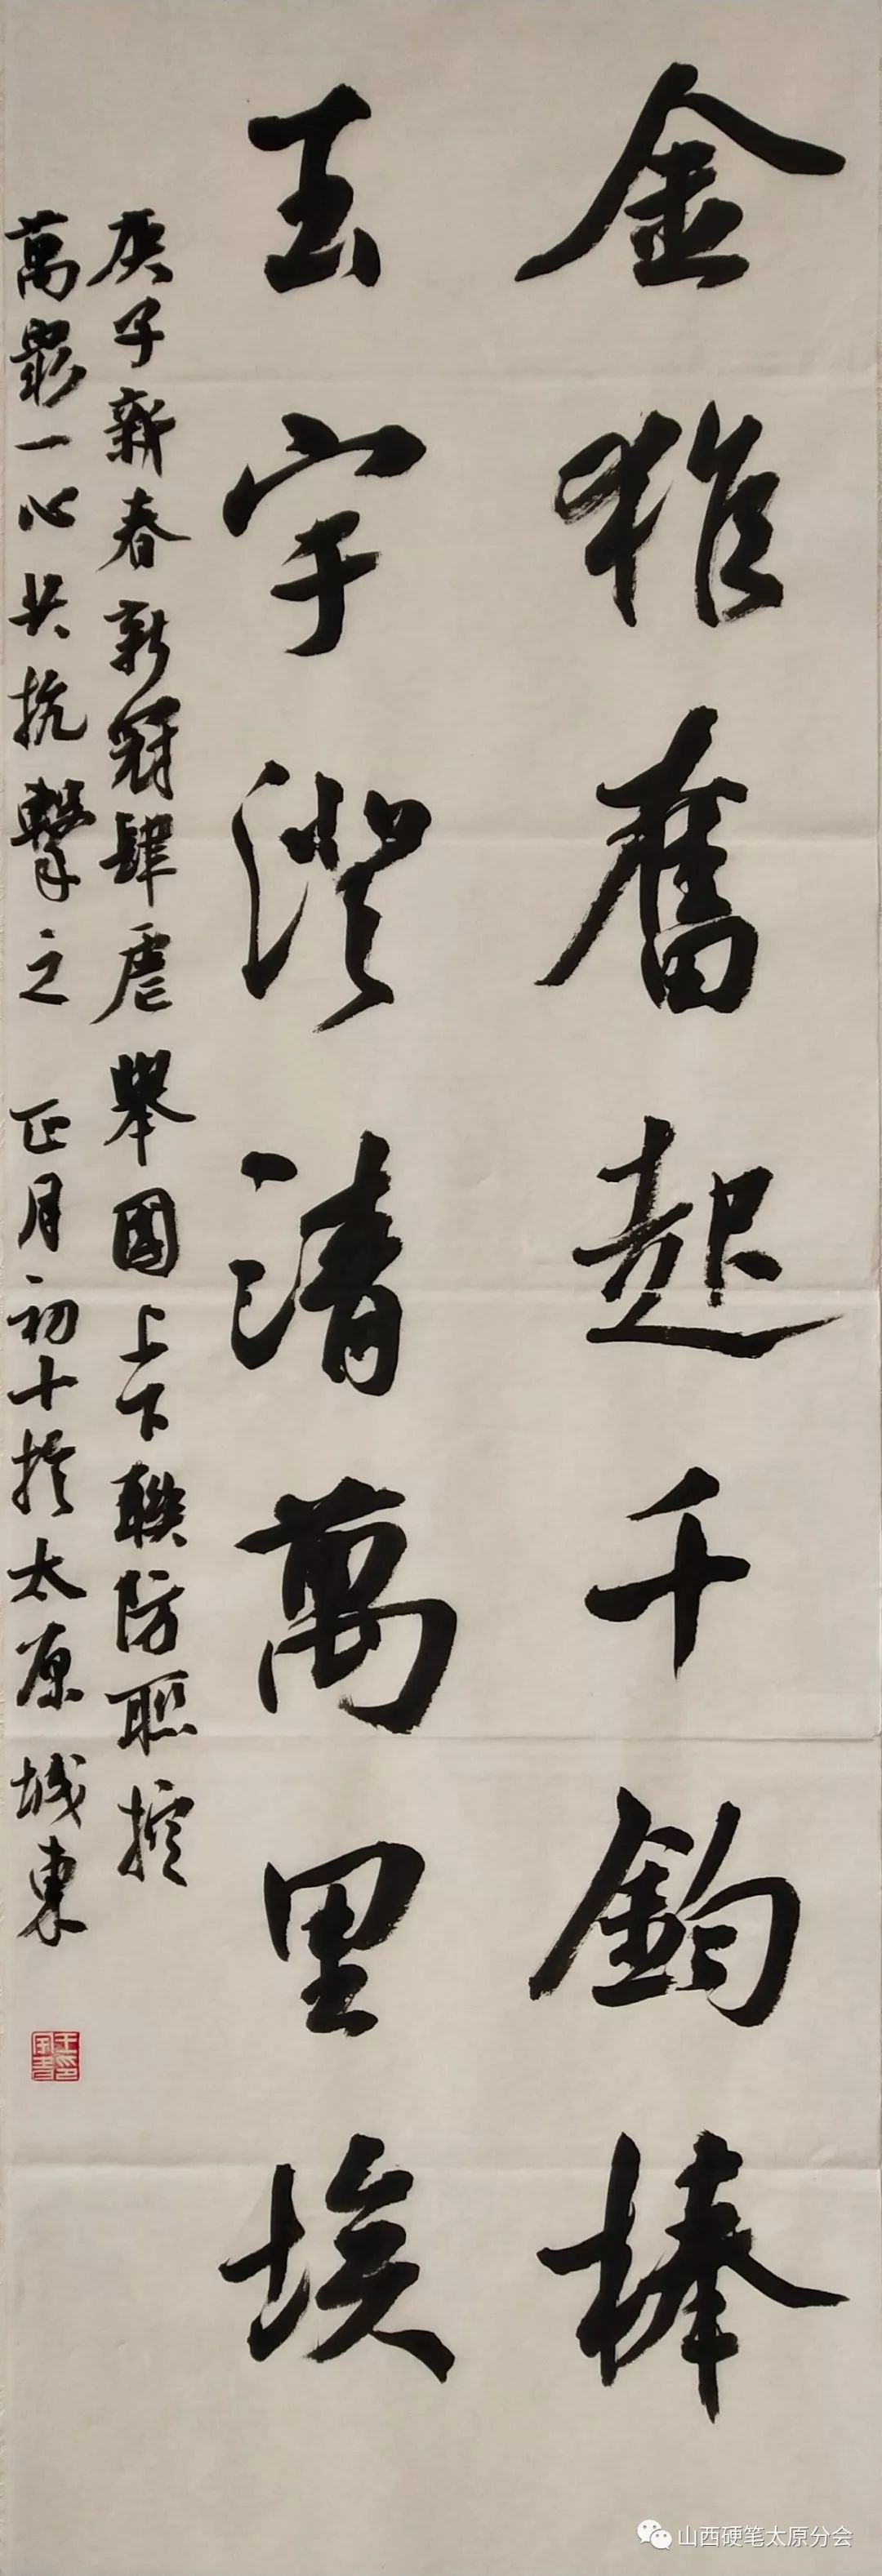 金猴奮起千鈞棒
玉宇澄清萬里埃
庚子新春新冠肆虐舉國上下聯防聯控
萬眾一心共抗擊之 正月初十於太原城東
山西硬笔太原分会